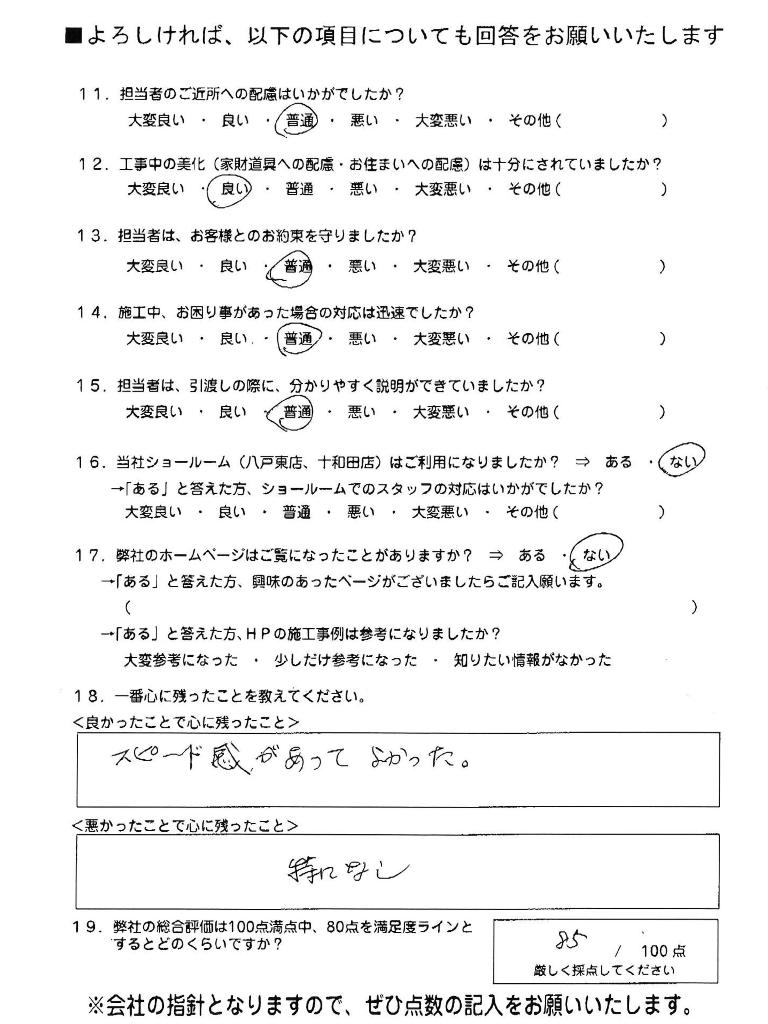 ■よろしければ、以下の項目についても回答をお願いいたします
11．担当者のご近所への配慮はいかがでしたか？
大変良い ・ 良い ・ 普通 ・ 悪い ・ 大変悪い ・ その他（　　　　　　　）
12．工事中の美化（家財道具への配慮・お住まいへの配慮）は十分にされていましたか？
大変良い ・ 良い ・ 普通 ・ 悪い ・ 大変悪い ・ その他（　　　　　　　）
13．担当者は、お客様とのお約束を守りましたか？
大変良い ・ 良い ・ 普通 ・ 悪い ・ 大変悪い ・ その他（　　　　　　　）
14．施工中、お困り事があった場合の対応は迅速でしたか？
大変良い ・ 良い ・ 普通 ・ 悪い ・ 大変悪い ・ その他（　　　　　　　）
15．担当者は、引渡しの際に、分かりやすく説明ができていましたか？
大変良い ・ 良い ・ 普通 ・ 悪い ・ 大変悪い ・ その他（　　　　　　　）
16．当社ショールーム（八戸東店、十和田店）はご利用になりましたか？ ⇒ ある ・ ない
→「ある」と答えた方、ショールームでのスタッフの対応はいかがでしたか？
大変良い ・ 良い ・ 普通 ・ 悪い ・ 大変悪い ・ その他（　　　　　　　）
17．弊社のホームページはご覧になったことがありますか？ ⇒ ある ・ ない
→「ある」と答えた方、興味のあったページがございましたらご記入願います。
（　　　　　　　　　　　　　　　　　　　　　　　　　　　　　　　　　）
→「ある」と答えた方、ＨＰの施工事例は参考になりましたか？
大変参考になった ・ 少しだけ参考になった ・ 知りたい情報がなかった
18．一番心に残ったことを教えてください。
＜良かったことで心に残ったこと＞
スピード感があってよかった。
＜悪かったことで心に残ったこと＞
特になし
19．弊社の総合評価は100点満点中、80点を満足度ラインと
するとどのくらいですか？
85 / 100点
厳しく採点してください
※会社の指針となりますので、ぜひ点数の記入をお願いいたします。